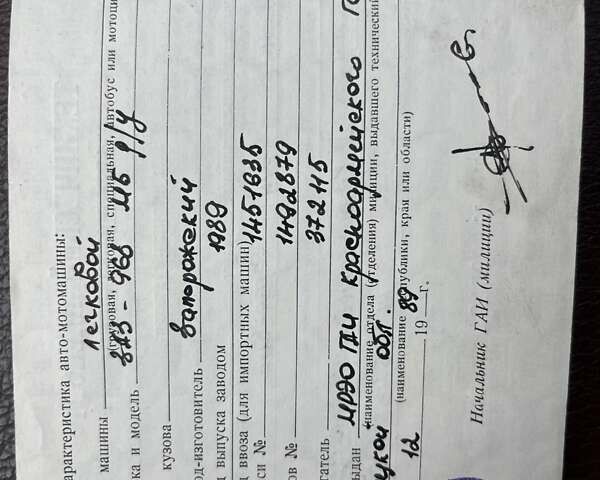 арактеристика авто-мотомашины:
машины Легковой
(грузовая, легковая, специальная, автобус или мотоци
ка и модель ЗАЗ-968 МБ р/у
кузова
од-изготовитель Запорожский
д выпуска заводом 1989
д ввоза (для импортных машин)
си № 1451635
ов № 1492879
гатель 372115
ыдан МРЭО ГАИ Красноармейского г
(наименование отдела (отделения) милиции, выдавшего технический
цкой обл.
(наименование республики, края или области)
12 19 89 г.
Начальник ГАИ (милиции)